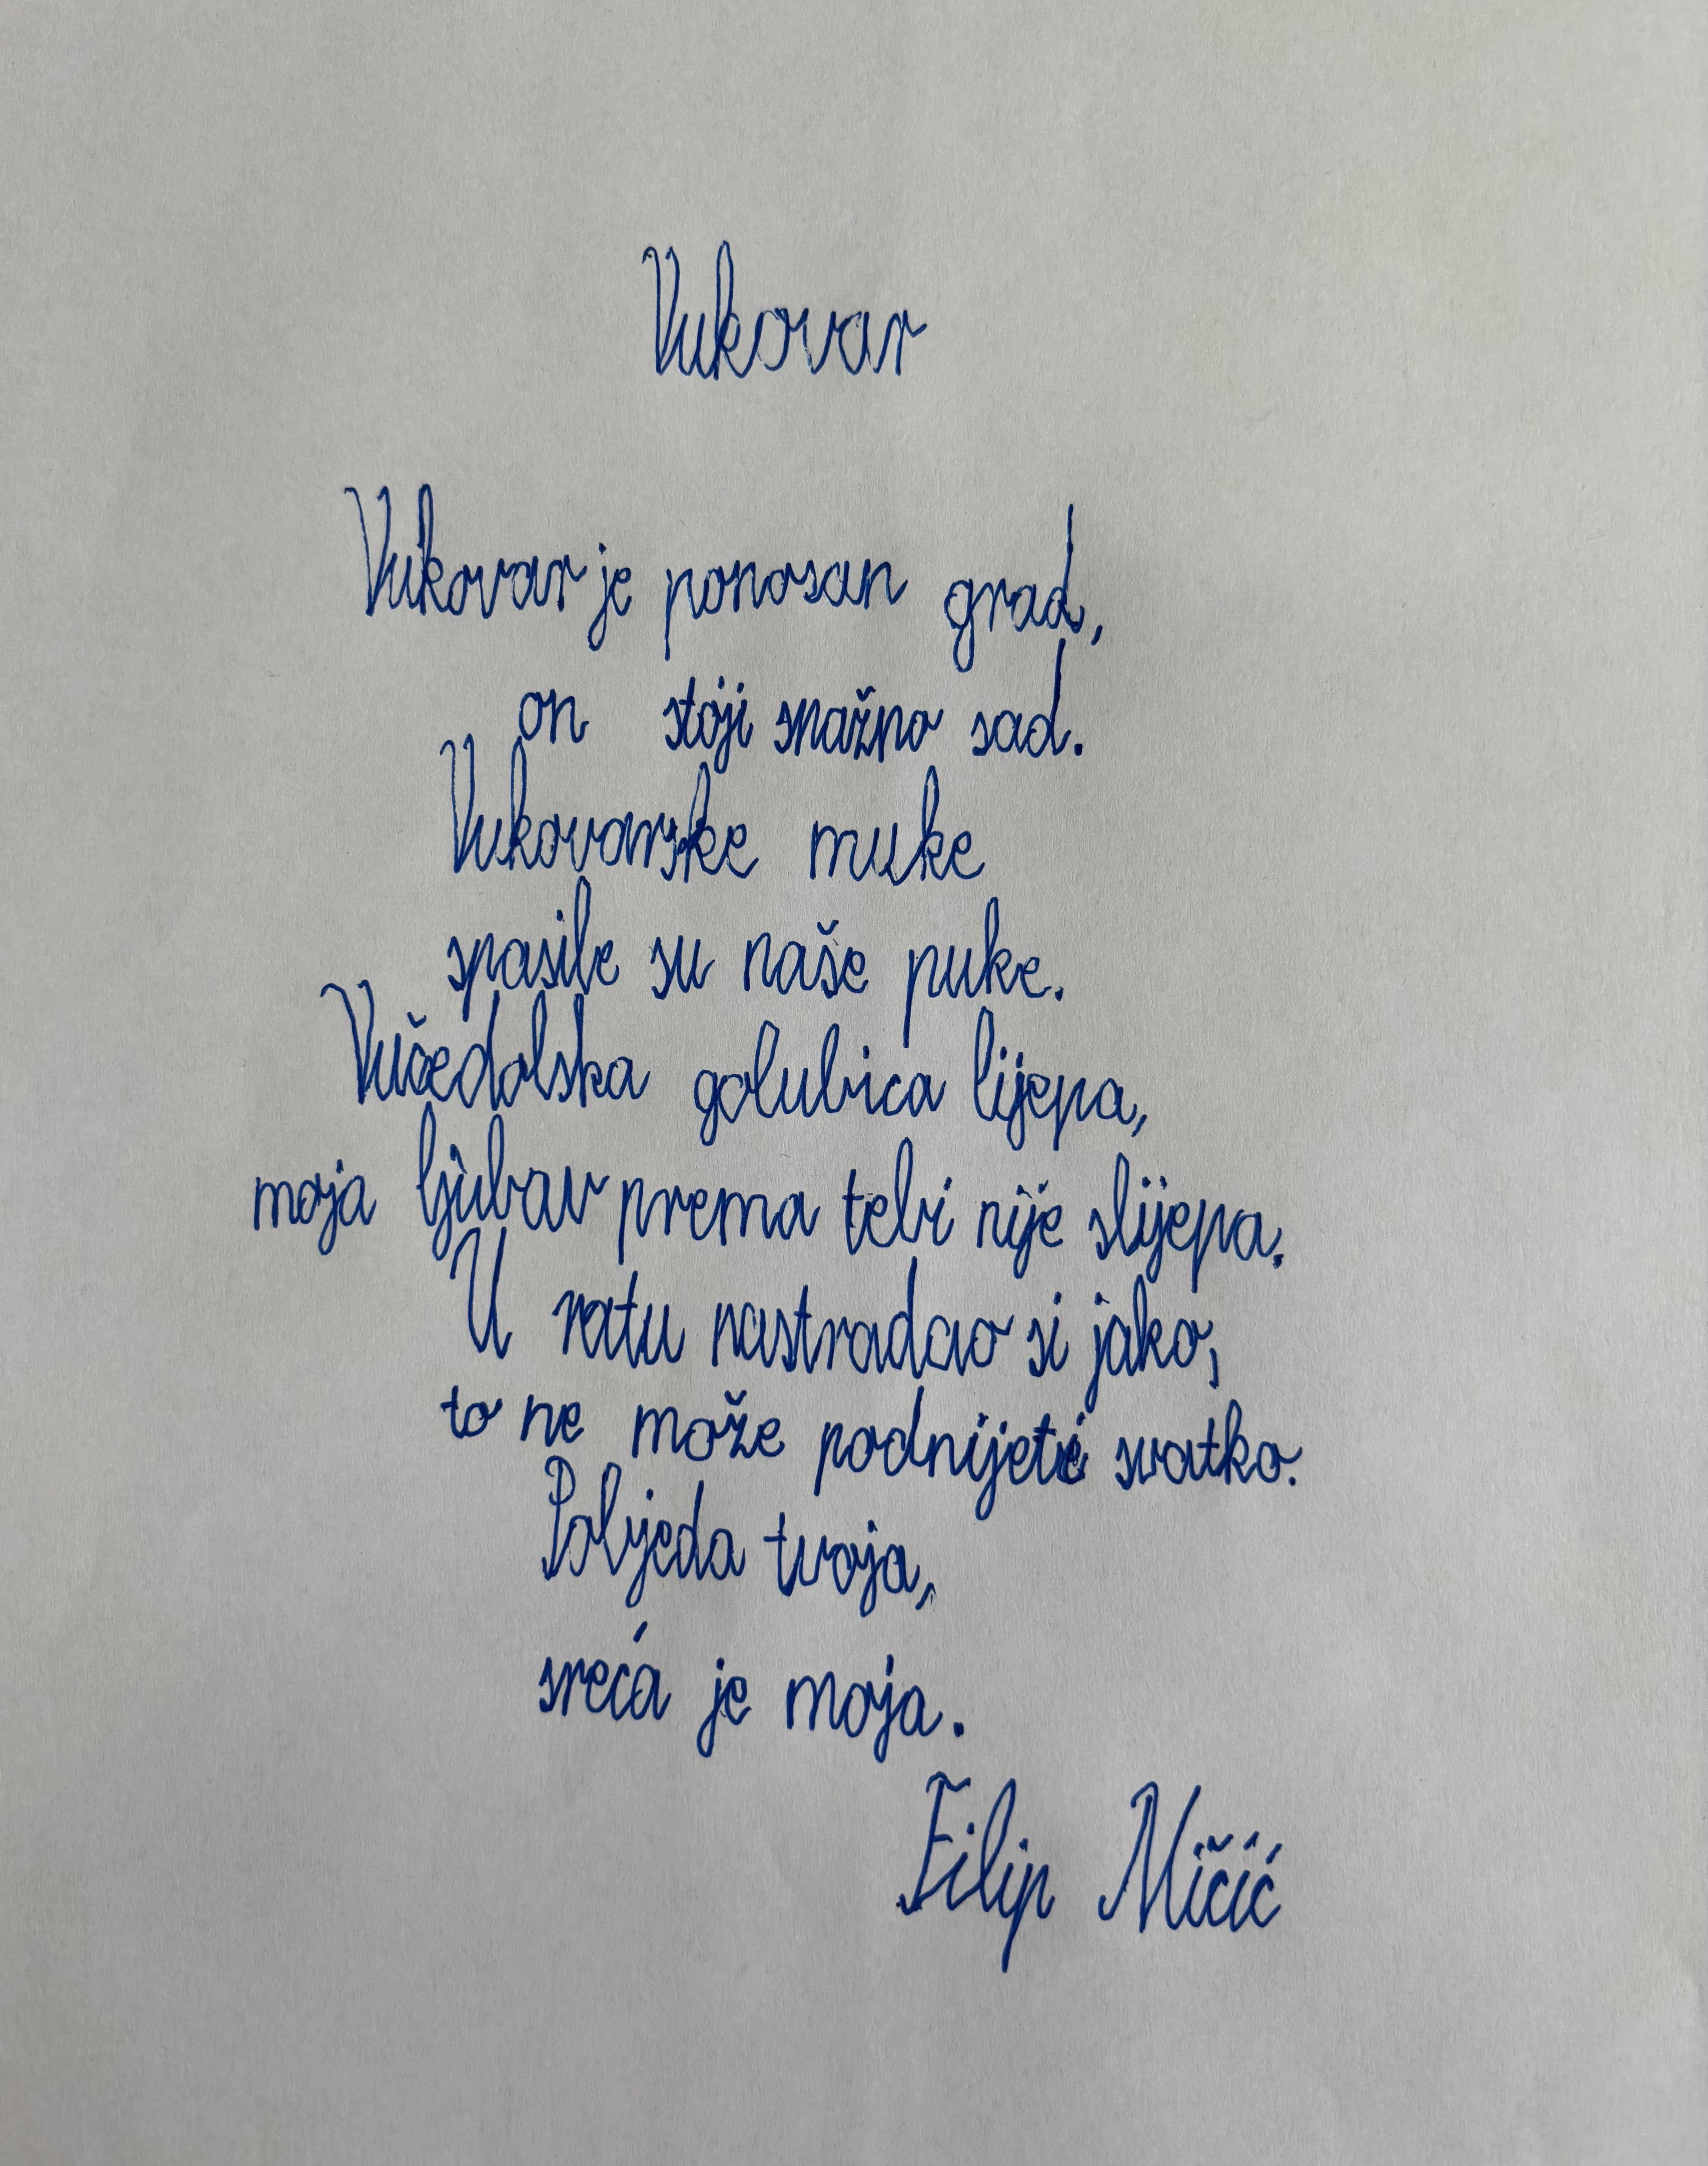 Vukovar
Vukovar je ponosan grad,
on stoji snažno sad.
Vukovarske muke
spasile su naše puke.
Vučedolska golubica lijepa,
moja ljubav prema tebi nije slijepa.
U ratu nastradao si jako,
to ne može podnijeti svatko.
Pobjeda tvoja,
sreća je moja.
Filip Mičić